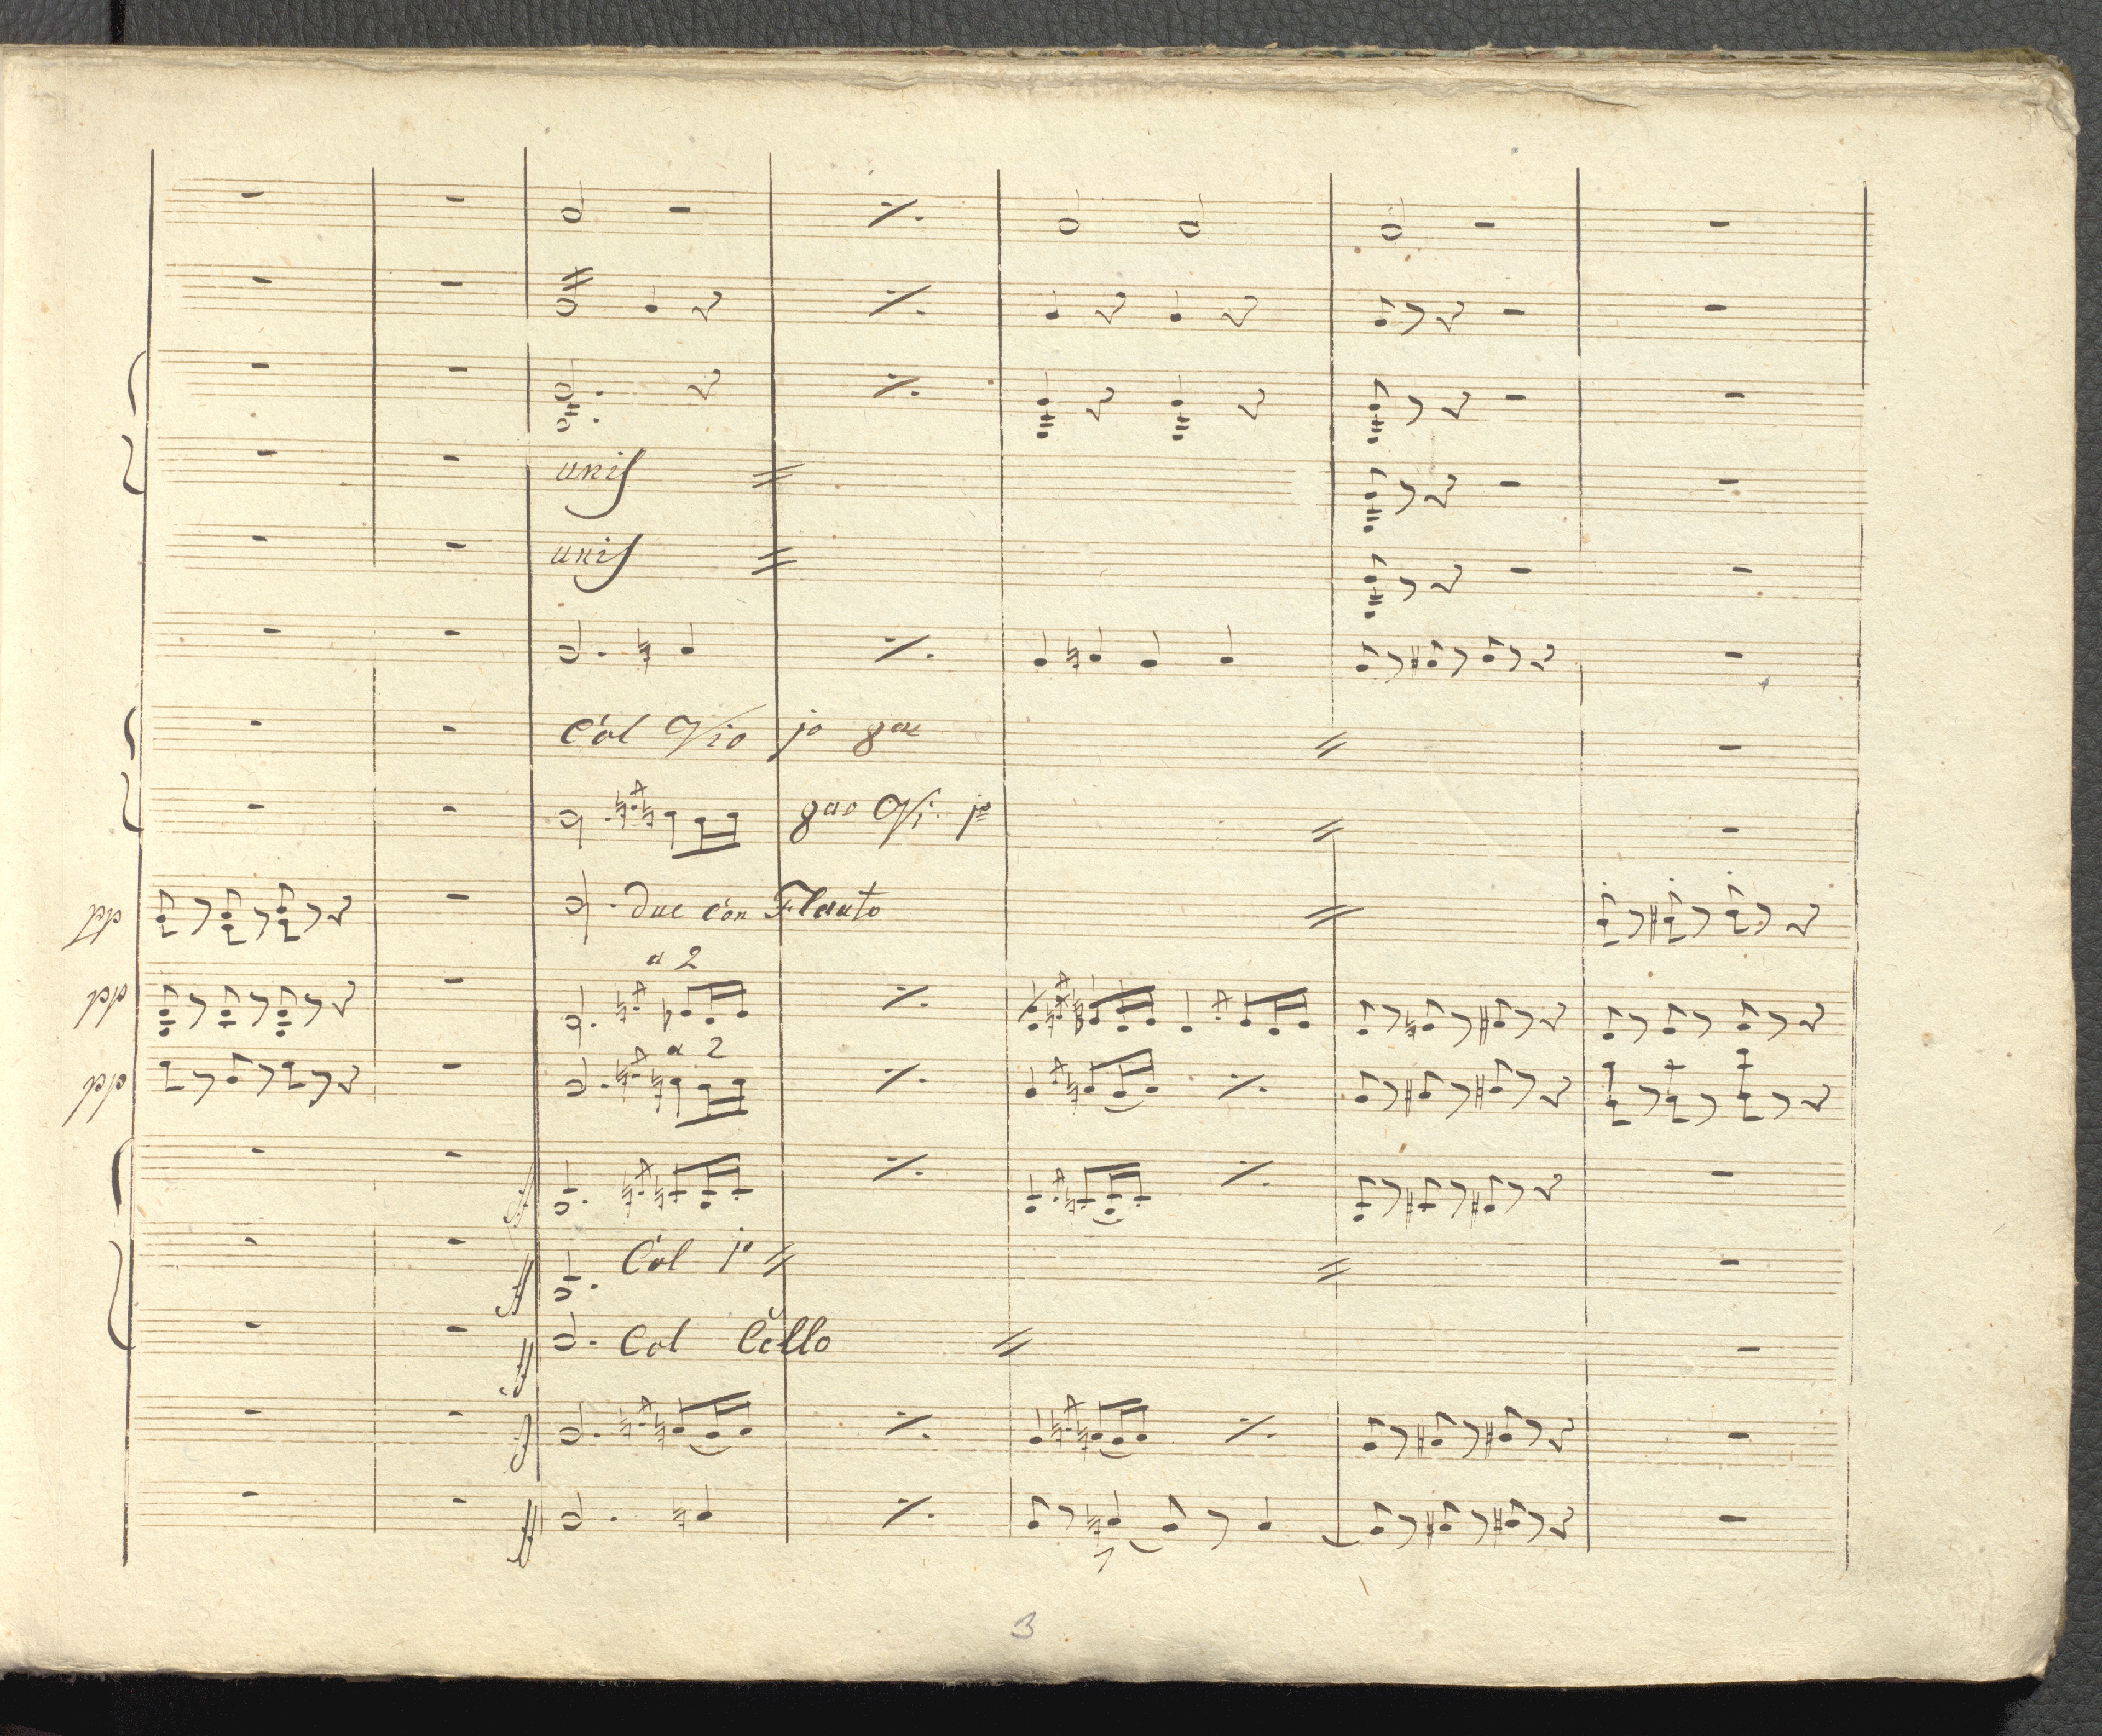 unis
unis
Col Vio jo 8va
8va Vi. jo
pp due con Flauto
a 2
pp
a 2
pp
ff
ff Col jo
ff Col Cello
f
ff
3